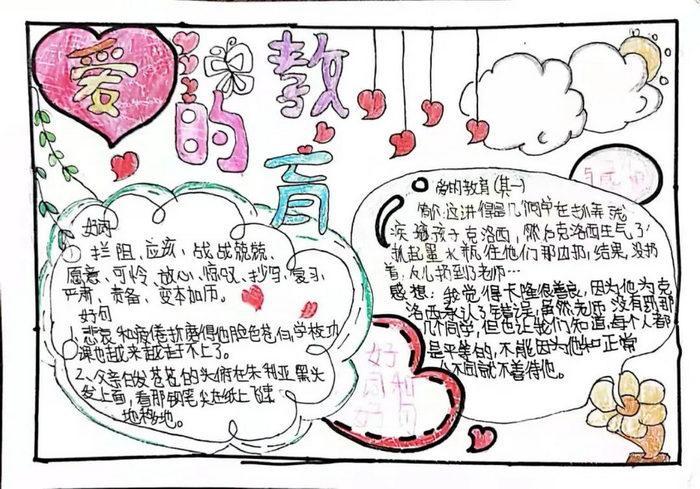 爱的教育
好词
①拦阻、应该、战战兢兢、
愿意、可怜、放心、惊叹、抄写、复习、
严肃、责备、变本加厉。
好句
1、悲哀和疲倦折磨得他脸色苍白,学校功
课也越来越赶不上了。
2、父亲白发苍苍的头俯在朱利亚黑头
发上面,看那钢笔尖在纸上飞速
地移动。
爱的教育(其一)
这讲得是几个同学在
孩子克洛西,然后克洛西生气了
就起墨水瓶往他们那边扔,结果,没扔
着,反儿扔到了老师…
感想:我觉得卡隆很善良,因为他为克
洛西承认了错误,虽然,老师没有到那
几个同学,但也让他们知道,每个人都
是平等的,不能因为他和正常
人不同就不善待他。
好
词和
好句